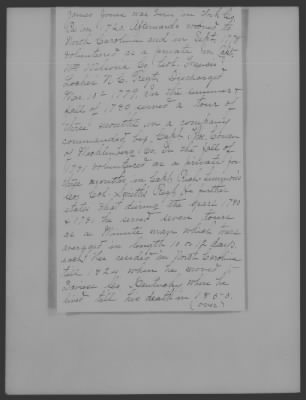 James Jones was born in York Co
Pa in 1760. Afterwards moved to
North Carolina and in Sept. 1778
volunteered as a private in Capt.
Wm Wilsons Co Col.
Locke N.C. Regt, Discharged
Mar. 10th 1779. In the summer &
fall of 1780 served a tour of
three months in a company
commanded by Capt. Thos. Cowan
of Mecklenburg Co. In the fall of
1781 volunteered as a private for
three months in Capt.
Co. Col. Smiths Regt. He further
states that during the years 1780
& 1781 he served seven tours
as a Minute man which tours
averaged in length 10 or 12 days
each. He resided in North Carolina
till 1824 when he moved to
Daviess Co. Kentucky where he
lived till his death in 1850.
(over)